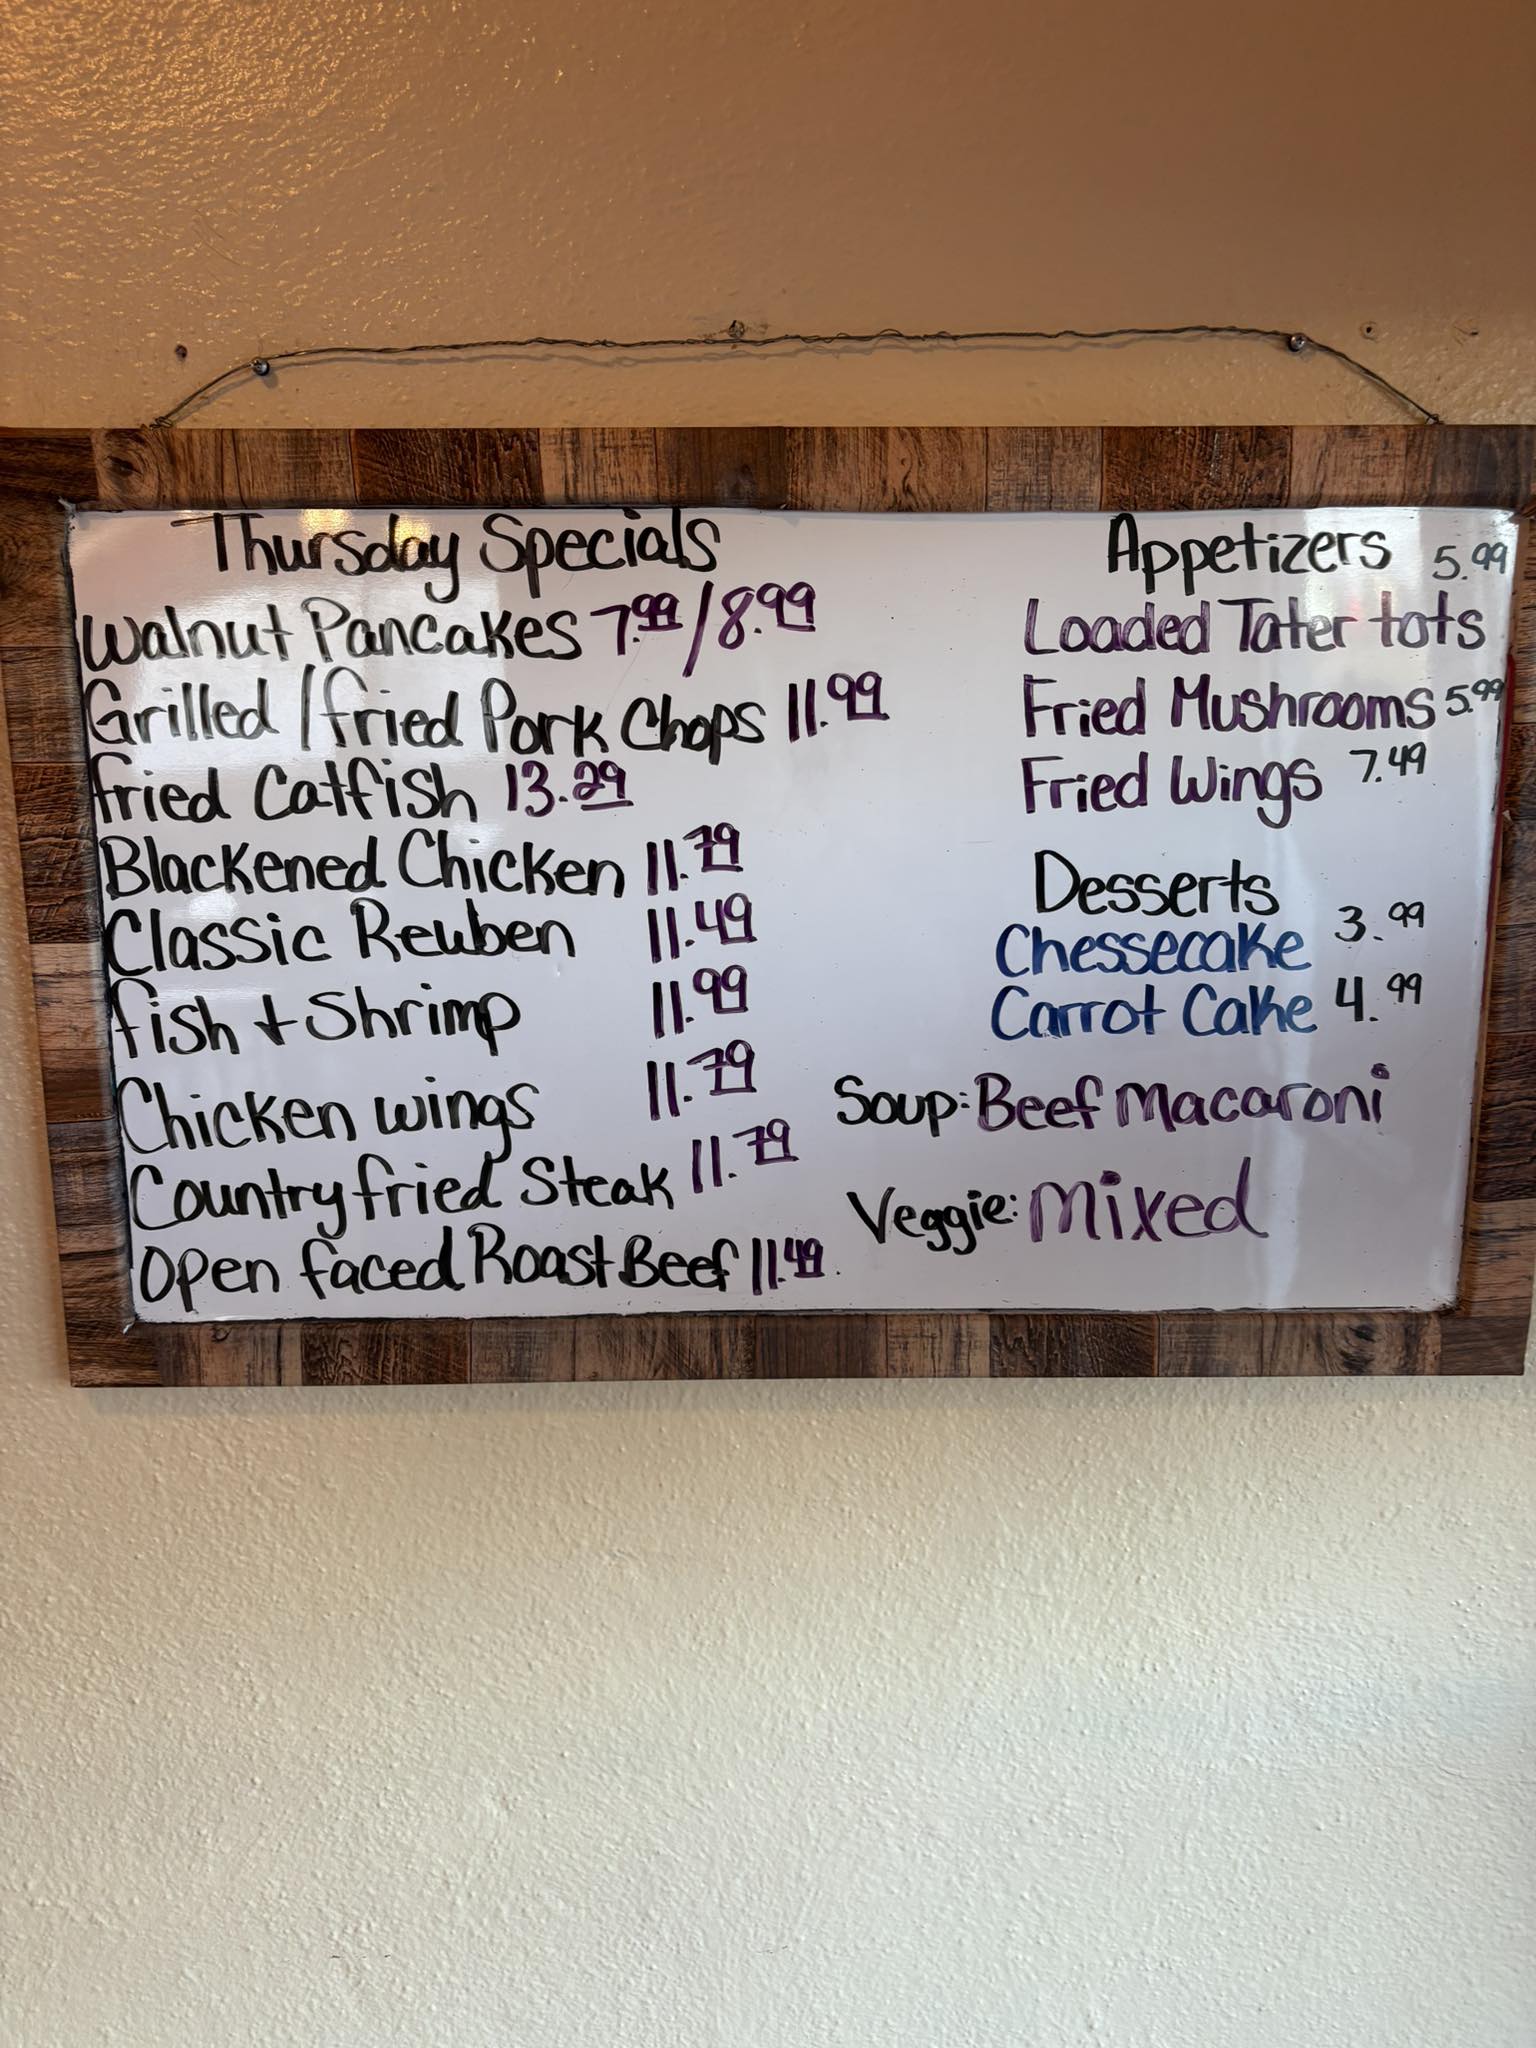 Thursday Specials
Walnut Pancakes 7.99/8.99
Grilled/fried Pork Chops 11.99
fried Catfish 13.29
Blackened Chicken 11.79
Classic Reuben 11.49
fish + Shrimp 11.99
Chicken wings 11.79
Country fried Steak 11.79
Open faced Roast Beef 11.49
Appetizers 5.99
Loaded Tater tots
Fried Mushrooms 5.99
Fried Wings 7.49
Desserts
Chessecake 3.99
Carrot Cake 4.99
Soup: Beef Macaroni
Veggie: Mixed